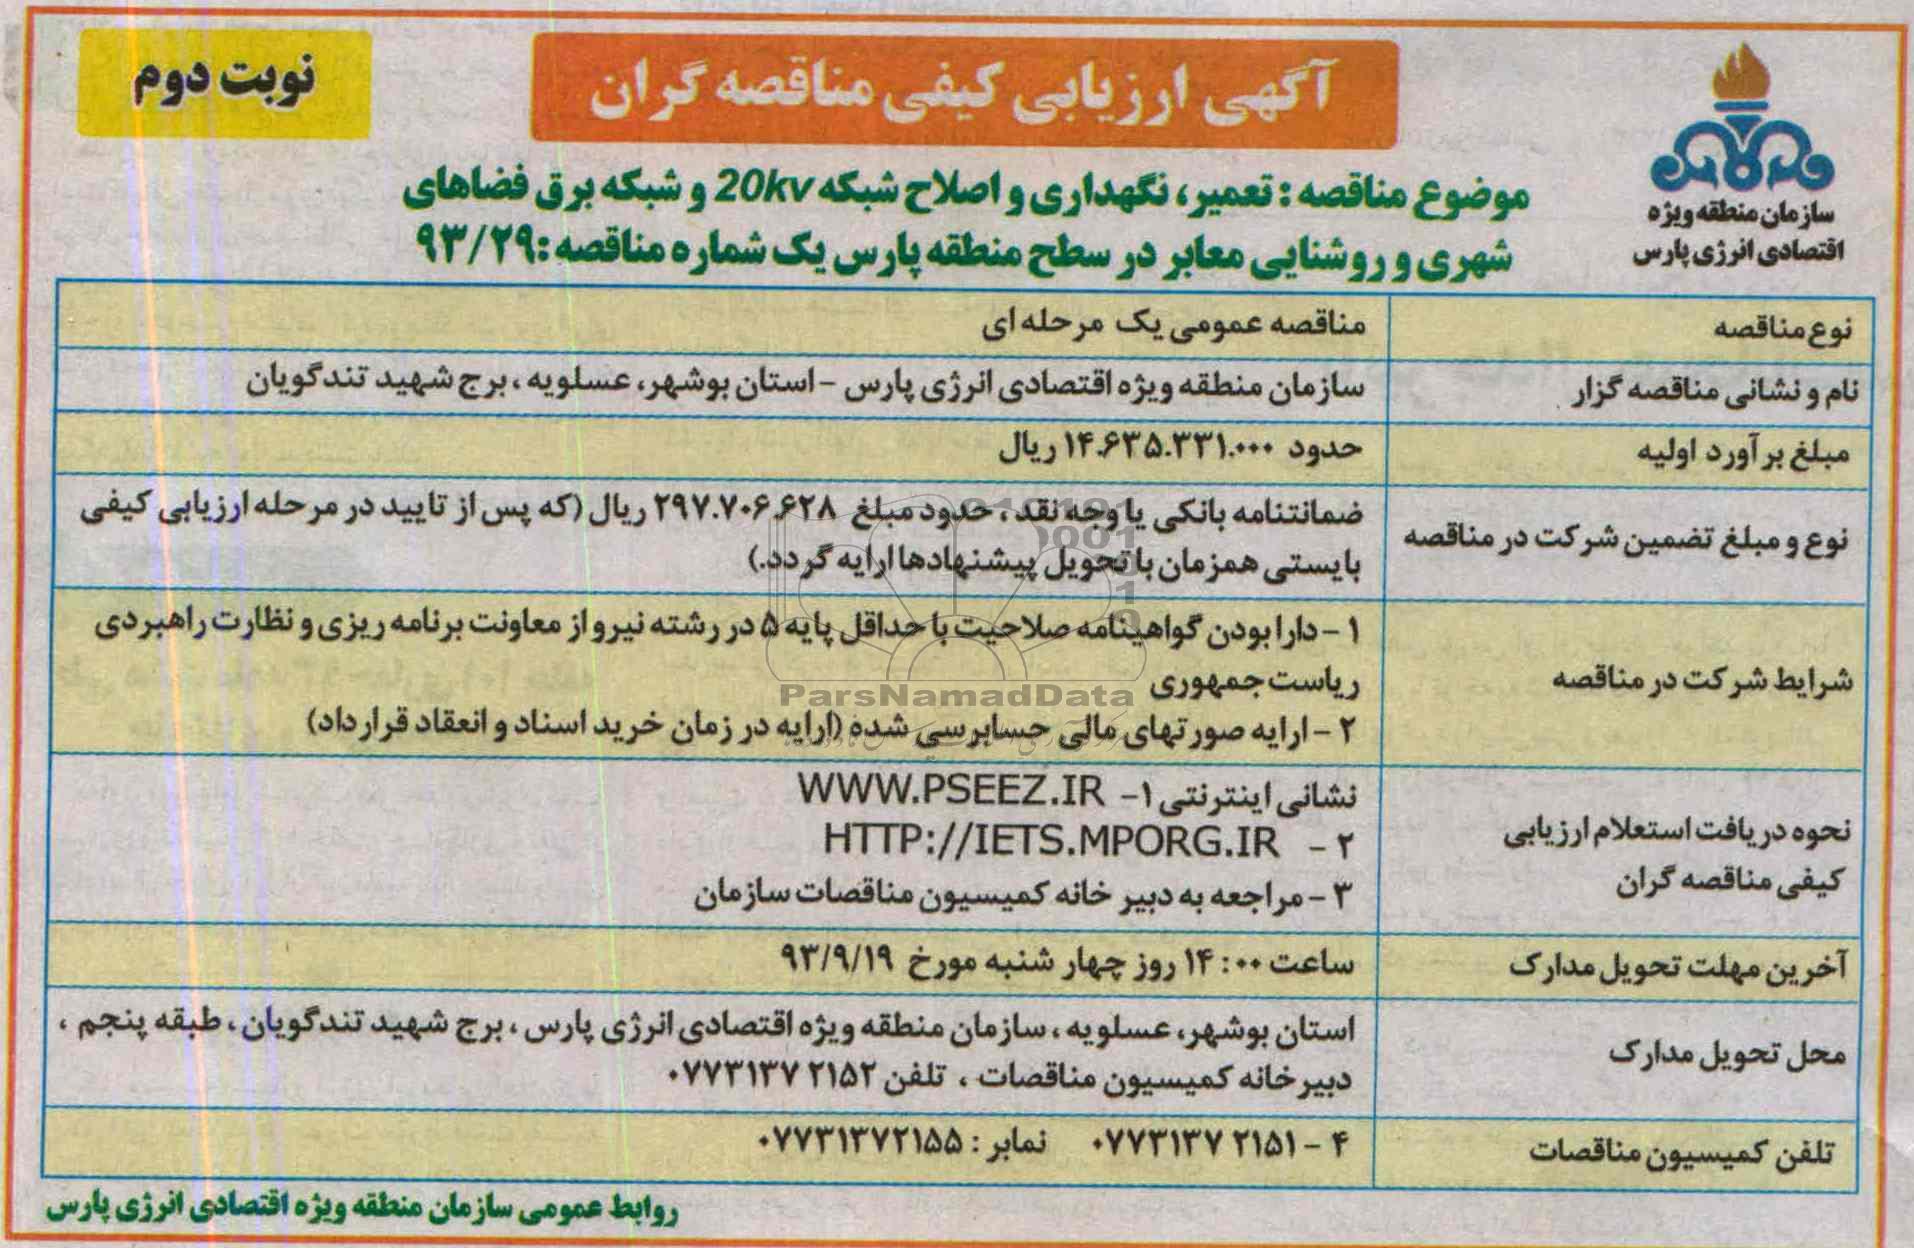 آگهی ارزیابی کیفی مناقصه گران
نوبت دوم
سازمان منطقه ویژه
اقتصادی انرژی پارس
موضوع مناقصه : تعمیر، نگهداری و اصلاح شبکه 20kv و شبکه برق فضاهای
شهری و روشنایی معابر در سطح منطقه پارس یک شماره مناقصه :۹۳/۲۹
نوع مناقصه
مناقصه عمومی یک مرحله ای
نام و نشانی مناقصه گزار
سازمان منطقه ویژه اقتصادی انرژی پارس - استان بوشهر، عسلویه ، برج شهید تندگویان
مبلغ برآورد اولیه
حدود ۱۴.۶۳۵.۳۳۱.۰۰۰ ریال
نوع و مبلغ تضمین شرکت در مناقصه
ضمانتنامه بانکی یا وجه نقد ، حدود مبلغ ۲۹۷.۷۰۶.۶۲۸ ریال (که پس از تایید در مرحله ارزیابی کیفی
بایستی همزمان با تحویل پیشنهادها ارایه گردد.)
شرایط شرکت در مناقصه
۱ - دارا بودن گواهینامه صلاحیت با حداقل پایه ۵ در رشته نیرو از معاونت برنامه ریزی و نظارت راهبردی
ریاست جمهوری
۲ - ارایه صورتهای مالی حسابرسی شده (ارایه در زمان خرید اسناد و انعقاد قرارداد)
ParsNamadData
نحوه دریافت استعلام ارزیابی
کیفی مناقصه گران
نشانی اینترنتی ۱- WWW.PSEEZ.IR
۲ - HTTP://IETS.MPORG.IR
۳ - مراجعه به دبیر خانه کمیسیون مناقصات سازمان
آخرین مهلت تحویل مدارک
ساعت ۱۴:۰۰ روز چهار شنبه مورخ ۹۳/۹/۱۹
محل تحویل مدارک
استان بوشهر، عسلویه ، سازمان منطقه ویژه اقتصادی انرژی پارس ، برج شهید تندگویان ، طبقه پنجم ،
دبیرخانه کمیسیون مناقصات ، تلفن ۲۱۵۲ ۰۷۷۳۱۳۷
تلفن کمیسیون مناقصات
۴ - ۲۱۵۱ ۰۷۷۳۱۳۷ نمابر : ۰۷۷۳۱۳۷۲۱۵۵
روابط عمومی سازمان منطقه ویژه اقتصادی انرژی پارس